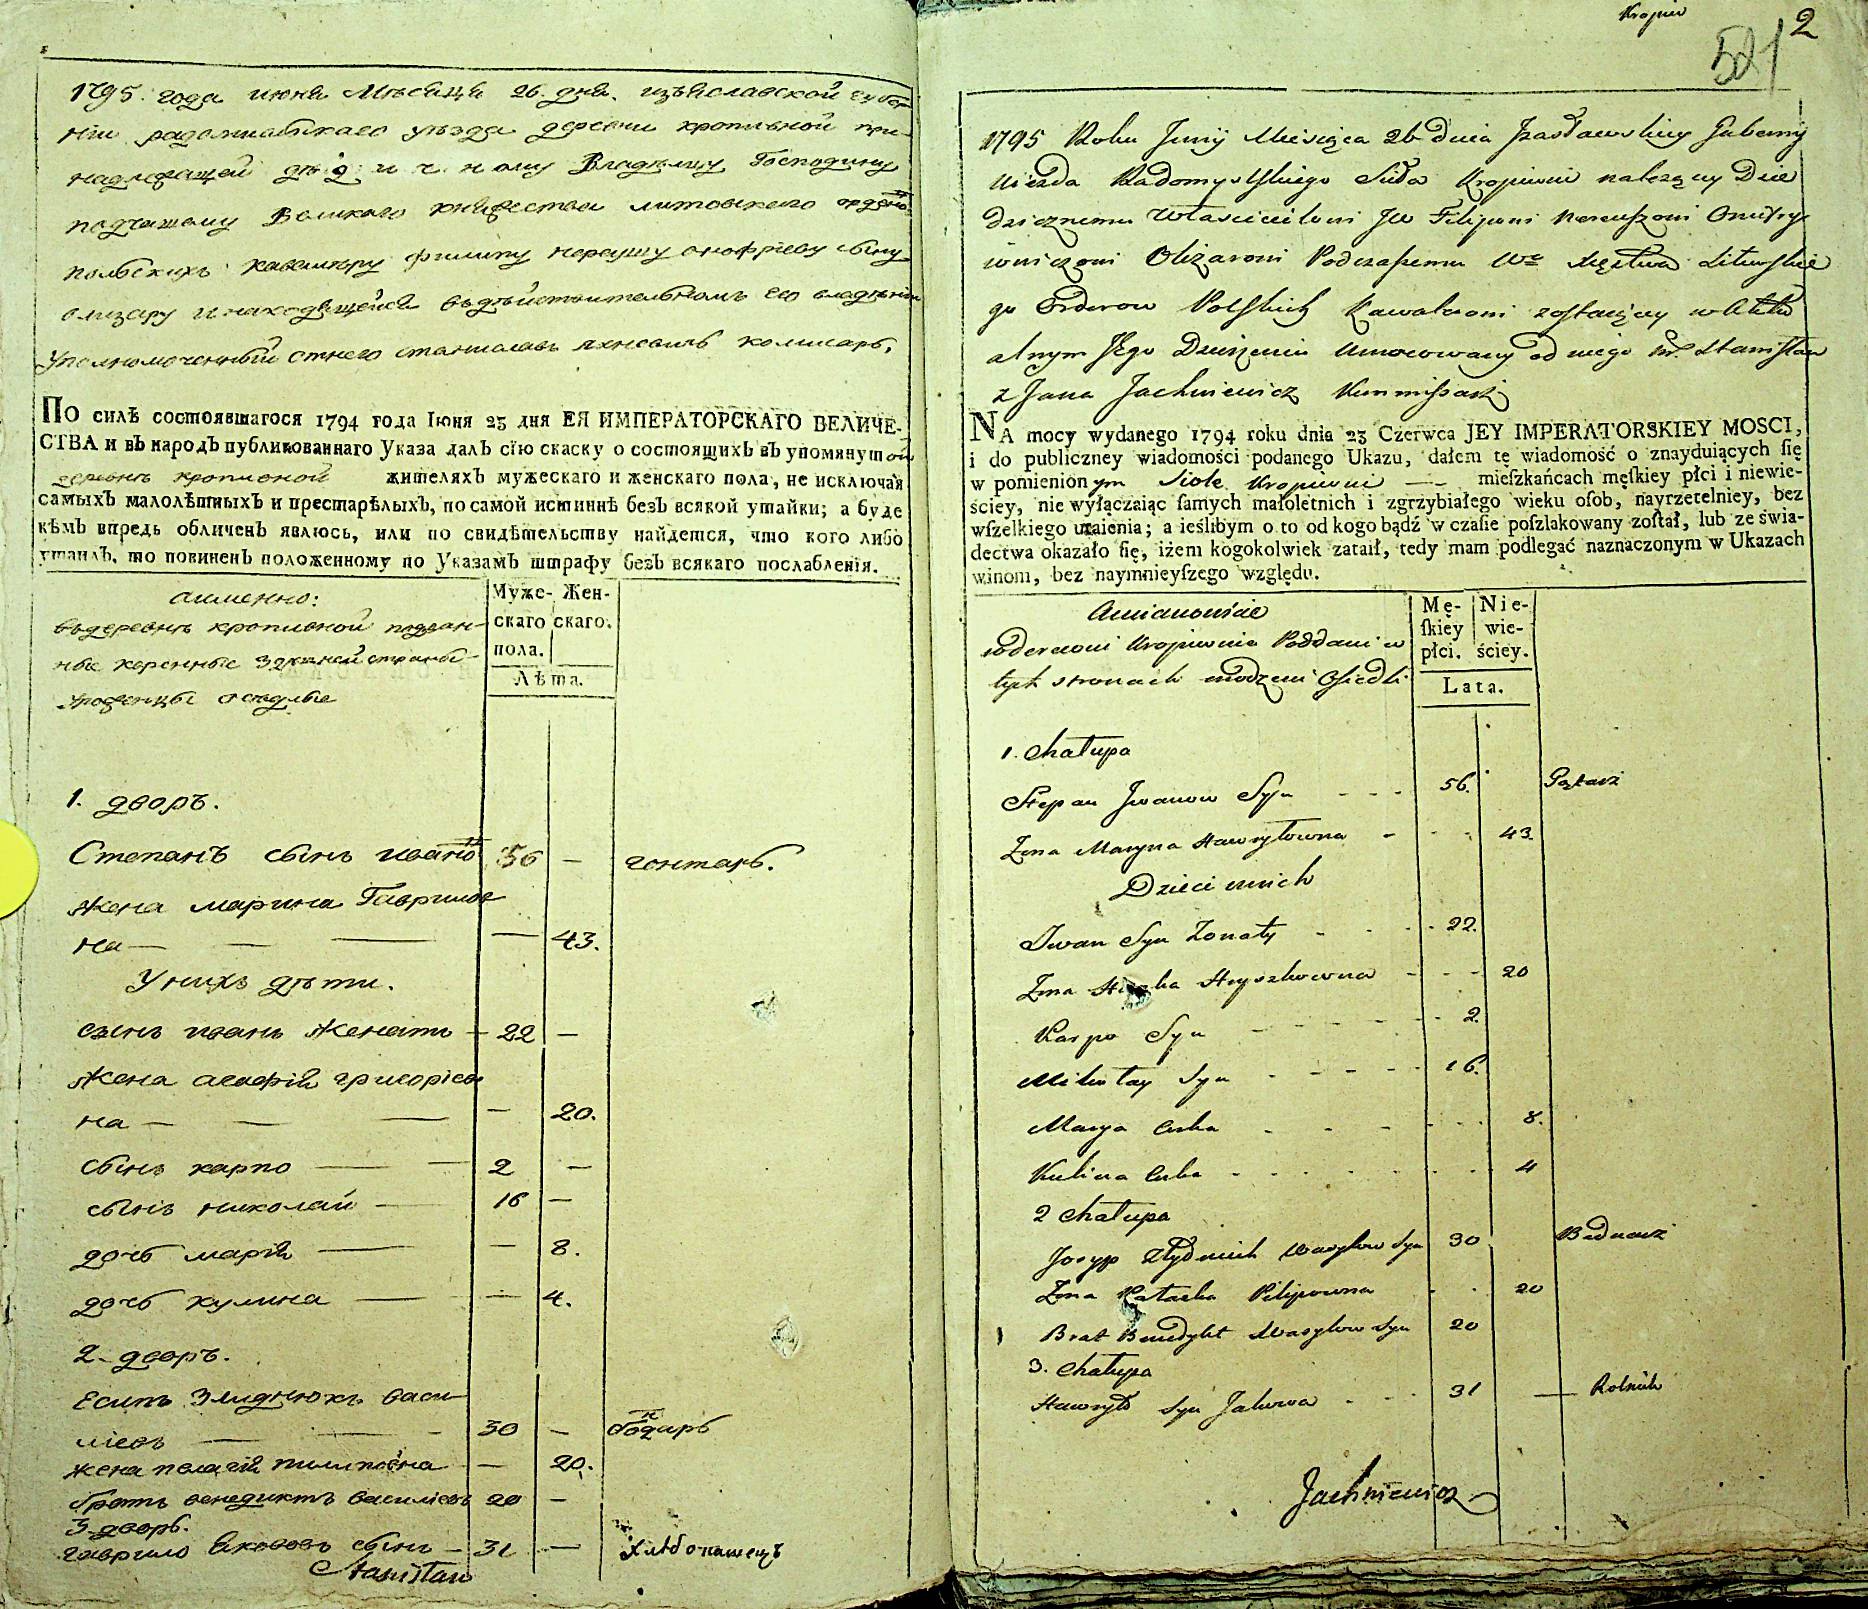 1795. года июня Месяца 26. дня. изъяславской губер-
нии радомысльскаго уезда деревни кропивной при-
надлежащей Владельцу Господину
подчашому Великого княжества литовскаго ордено
польскихъ кавалеру филипу нереушу онофриеву сыну
олизару и находящейся въ действительномъ его владении
уполномоченный отнего станиславъ яхневичъ комисаръ,
ПО силѣ состоявшагося 1794 года Іюня 23 дня ЕЯ ИМПЕРАТОРСКАГО ВЕЛИЧЕ-
СТВА и въ народъ публикованнаго Указа далъ сію скаску о состоящихъ въ упомянутой
деревне кропивной жителяхъ мужескаго и женскаго пола, не исключая
самыхъ малолѣтныхъ и престарѣлыхъ, по самой истиннѣ безъ всякой утайки; а буде
кѣмъ впредь обличенъ явлюсь, или по свидѣтельству найдется, что кого либо
утаилъ, то повиненъ положенному по Указамъ штрафу безъ всякаго послабленія.
аименно:
въдеревне кропивной поддан-
ные коренные здешней страны
уроженцы оседлые
Муже- Жен-
скаго скаго.
пола.
Лѣта.
1. дворъ.
Степанъ сынъ ивано 56 — гонтарь.
Жена марина Гаврилов
на — — — — 43.
У нихъ дети.
сынъ иванъ Женатъ — 22 —
Жена агафия григориев
на — — — — 20.
сынъ карпо — — 2 —
сынъ николай — 16 —
дочь мария — — 8.
дочь кулина — — 4.
2. дворъ.
Есипъ Злиднюхъ васи-
лиевъ — — — 30 — бондарь
жена пелагия пилиповна — 20.
братъ венедиктъ василиевъ 20 —
3 дворъ.
гаврило Яковъ сынъ — 31 — хлебопашецъ
Stanisław
Kropiw
2
521
1795 Roku Junij Miesiąca 26 dnia Izasławskiey Guberny
Uiezda Radomyslskiego Sioła Kropiwni należący Dzie
dzicznemu Właścicielowi JW Filipowi Nereuszowi Onufry
iewiczowi Olizarowi Podczaszemu Wo Xięstwa Litewskie
go Orderow Polskich Kawalerowi zostaiący w Aktu
alnym Jego Dzierżeniu Umocowany od niego Stanisław
z Jana Jachniewicz Kommissarz
NA mocy wydanego 1794 roku dnia 23 Czerwca JEY IMPERATORSKIEY MOSCI,
i do publiczney wiadomości podanego Ukazu, dałem tę wiadomość o znayduiących ſię
w pomienionym Siole Kropiwni — mieſzkańcach męſkiey płci i niewie-
ściey, nie wyłączaiąc ſamych małoletnich i zgrzybiałego wieku oſob, nayrzetelniey, bez
wſzelkiego utaienia; a ieślibym o to od kogo bądź w czaſie poſzlakowany zoſtał, lub ze świa-
dectwa okazało ſię, iżem kogokolwiek zataił, tedy mam podlegać naznaczonym w Ukazach
winom, bez naymnieyſzego względu.
Amianowicie
w derewni Kropiwnia Poddani w
tych stronach urodzeni Osiedli
Mę- Nie-
ſkiey wie-
płci. ściey.
Lata.
1. Chałupa
Stepan Jwanow Syn - - - 56. Gątarz
Żona Maryna Hawryłowna - - - 43.
Dzieci u nich
Jwan Syn Żonaty - - - 22.
Żona Hryszkowna - - - 20
Karpo Syn - - - 2.
Mikołay Syn - - - 16.
Marya Curka - - - 8.
Kulina Curka - - - 4
2 Chałupa
Josyp Złydniuk Wasylow Syn 30 Bednarz
Żona Pałażka Pilipowna - - 20
Brat Benedykt Wasylow Syn 20
3. Chałupa
Hawryło Syn Jakowa - - - 31 — Rolnik
Jachniewicz